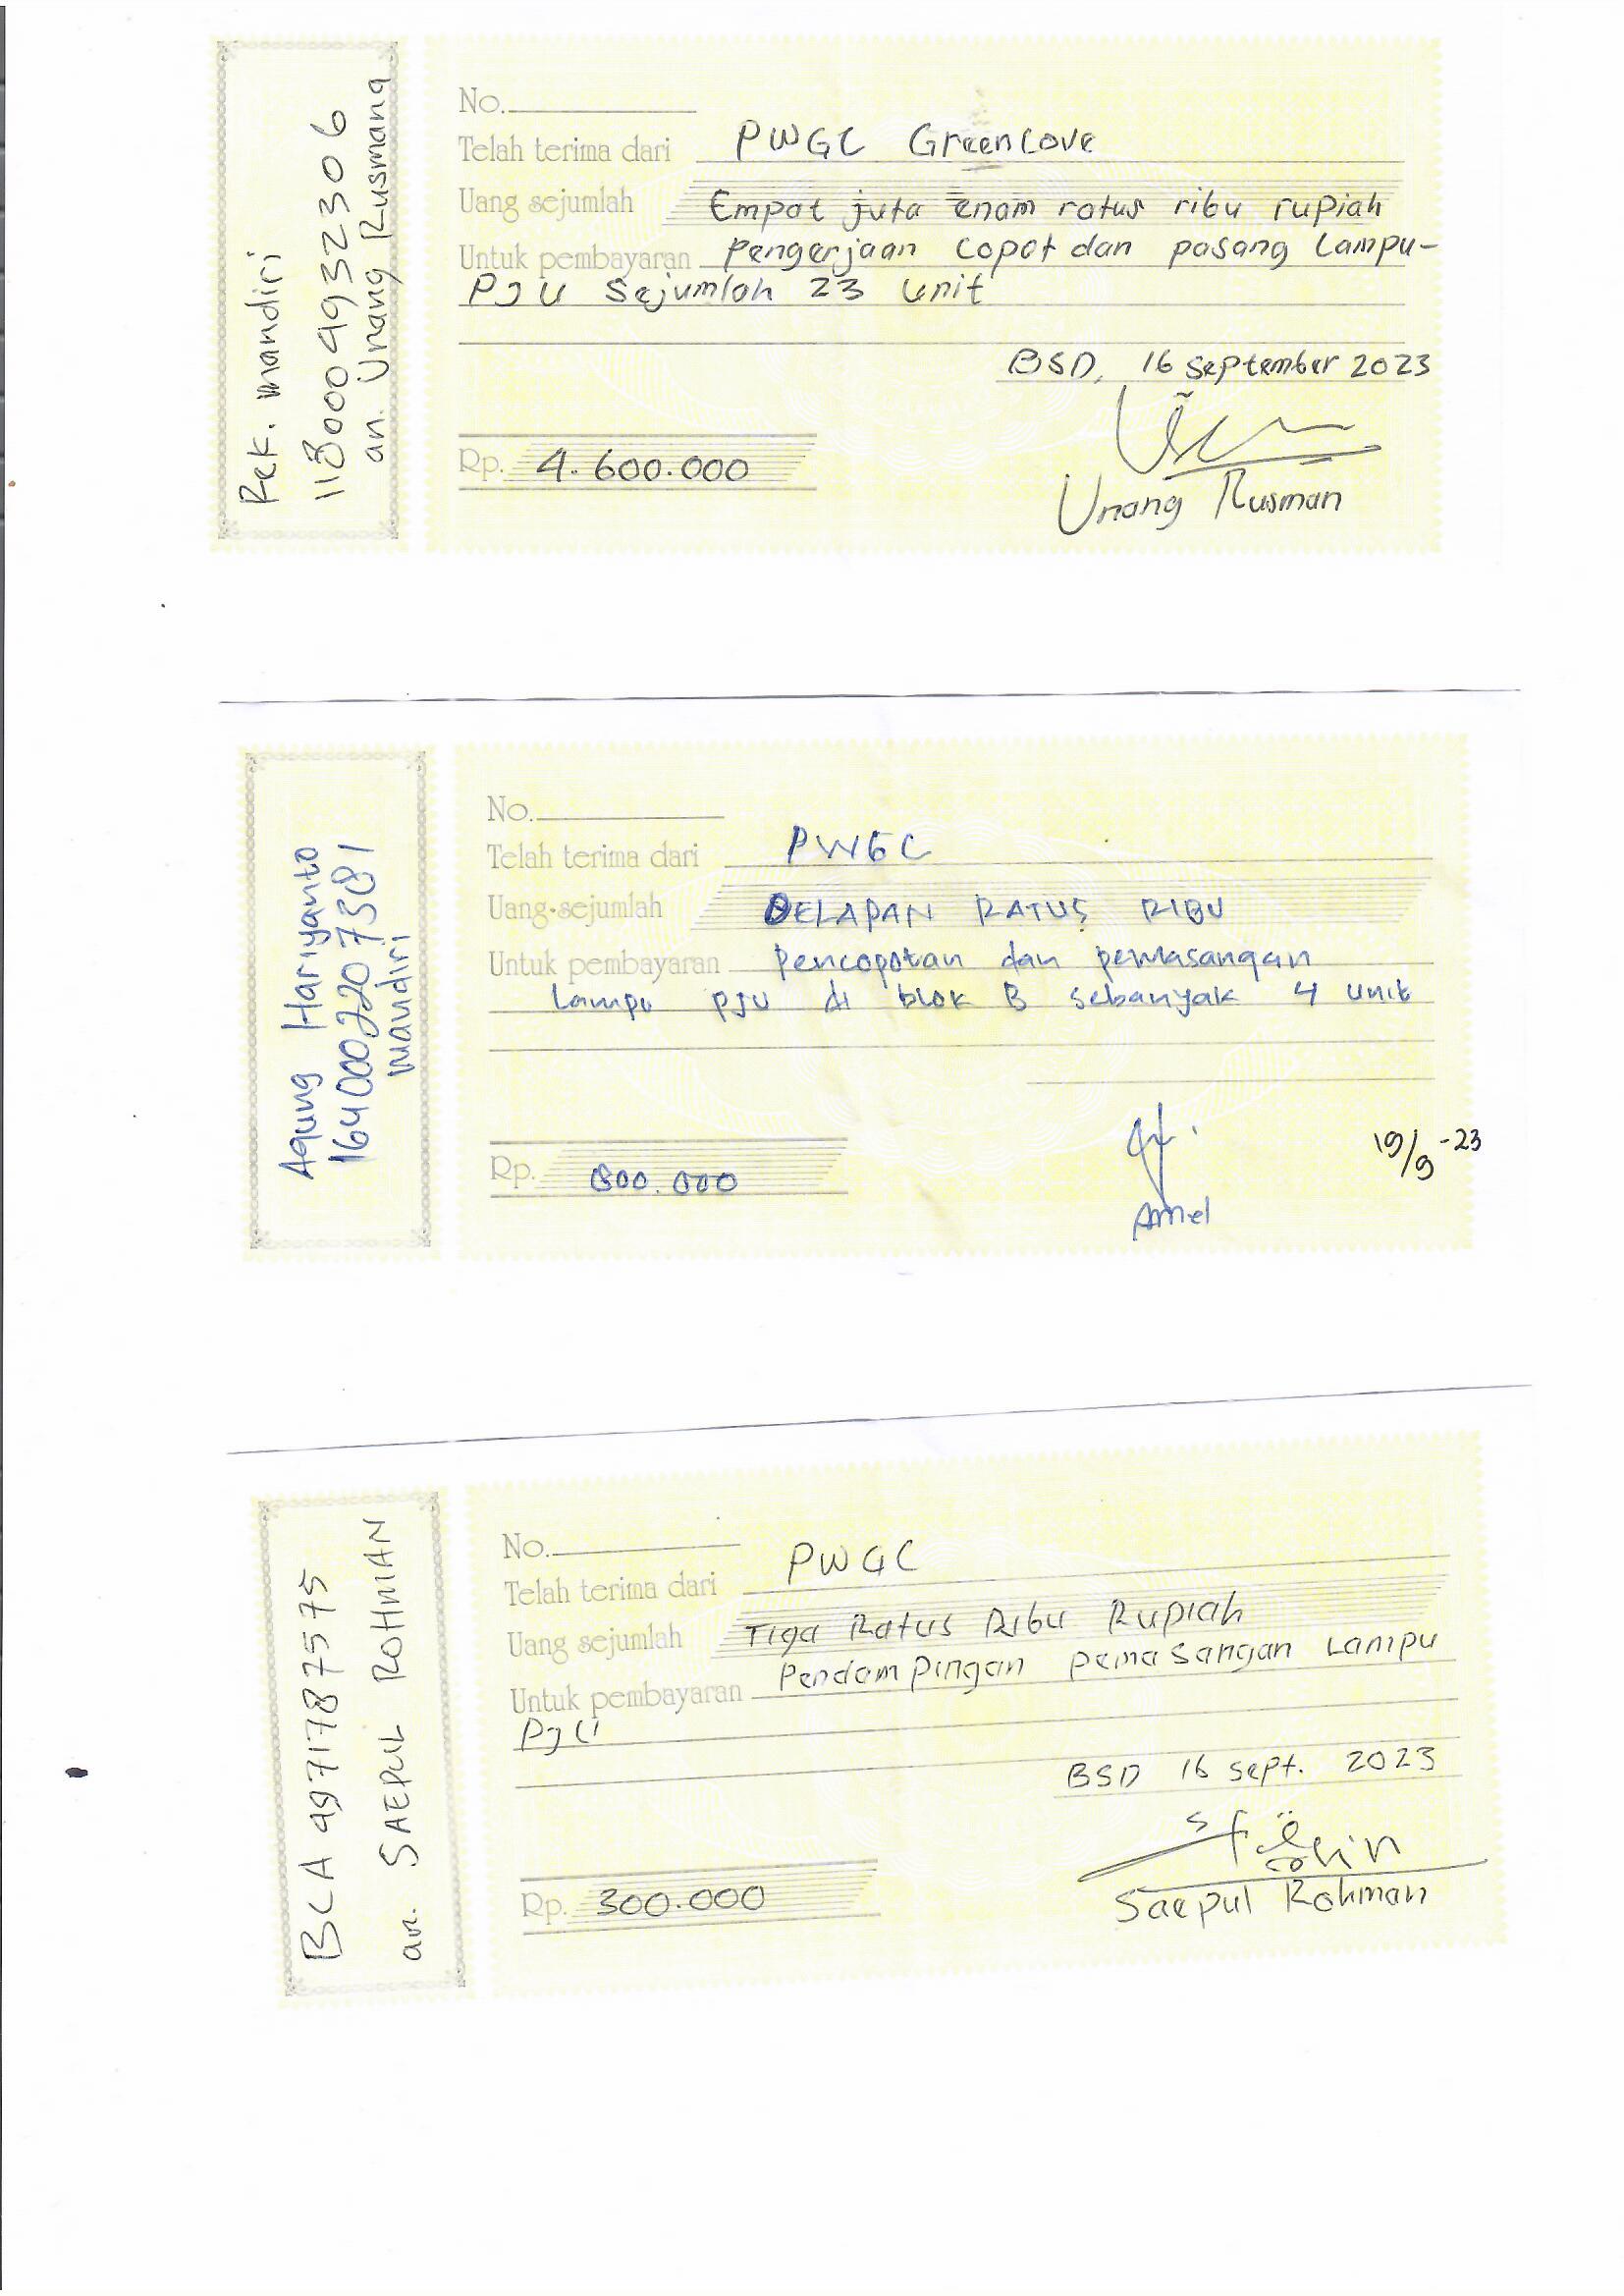 Rek. mandiri
1180004932306
an. Unang Rusmana
No.
Telah terima dari PWGC GreenCove
Uang sejumlah Empat juta enam ratus ribu rupiah
Untuk pembayaran Pengerjaan Copot dan pasang Lampu-
PJU Sejumlah 23 Unit
BSD, 16 September 2023
Rp. 4.600.000
Unang Rusman
Agung Hariyanto
1640002207381
mandiri
No.
Telah terima dari PWGC
Uang sejumlah DELAPAN RATUS RIBU
Untuk pembayaran Pencopotan dan pemasangan
Lampu PJU di blok B sebanyak 4 unit
19/9-23
Rp. 800.000
Amel
BCA 4971787575
an. SAEPUL ROHMAN
No.
Telah terima dari PWGC
Uang sejumlah Tiga Ratus Ribu Rupiah
Untuk pembayaran Pendampingan pemasangan Lampu
PJU
BSD 16 Sept. 2023
Rp. 300.000
Saepul Rohman